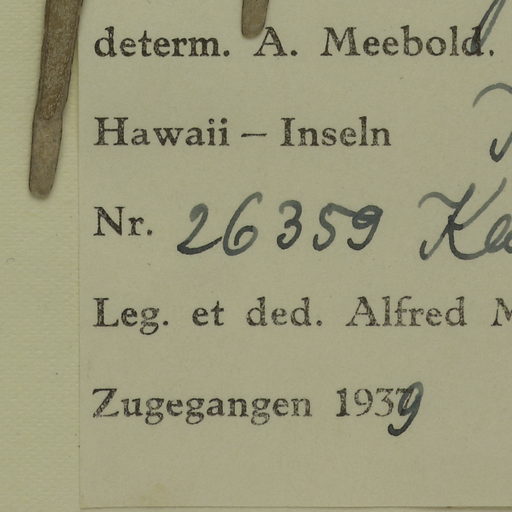 determ. A. Meebold.
Hawaii – Inseln
Nr. 26359
Leg. et ded. Alfred
Zugegangen 1939